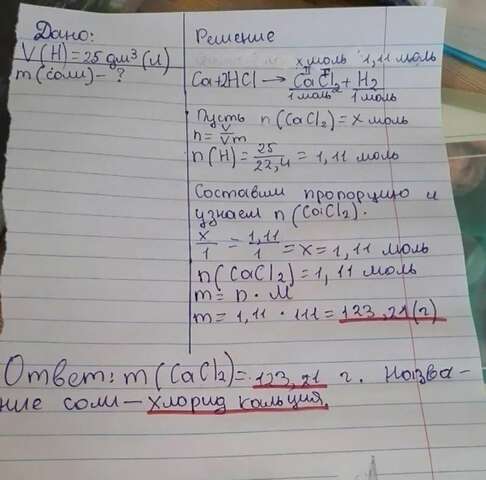 Дано:
V(H)=25дм³(л)
m(соли)-?
Решение
x моль 1,11 моль
Ca+2HCl→CaCl₂+H₂
II I
1 моль 1 моль
Пусть n(CaCl₂)=x моль
n=V/Vm
n(H)=25/22,4=1,11 моль
Составим пропорцию и
узнаем n(CaCl₂).
x/1=1,11/1=x=1,11 моль
n(CaCl₂)=1,11 моль
m=n·M
m=1,11·111=123,21(г)
Ответ: m(CaCl₂)=123,21 г. Назва-
ние соли-хлорид кальция.